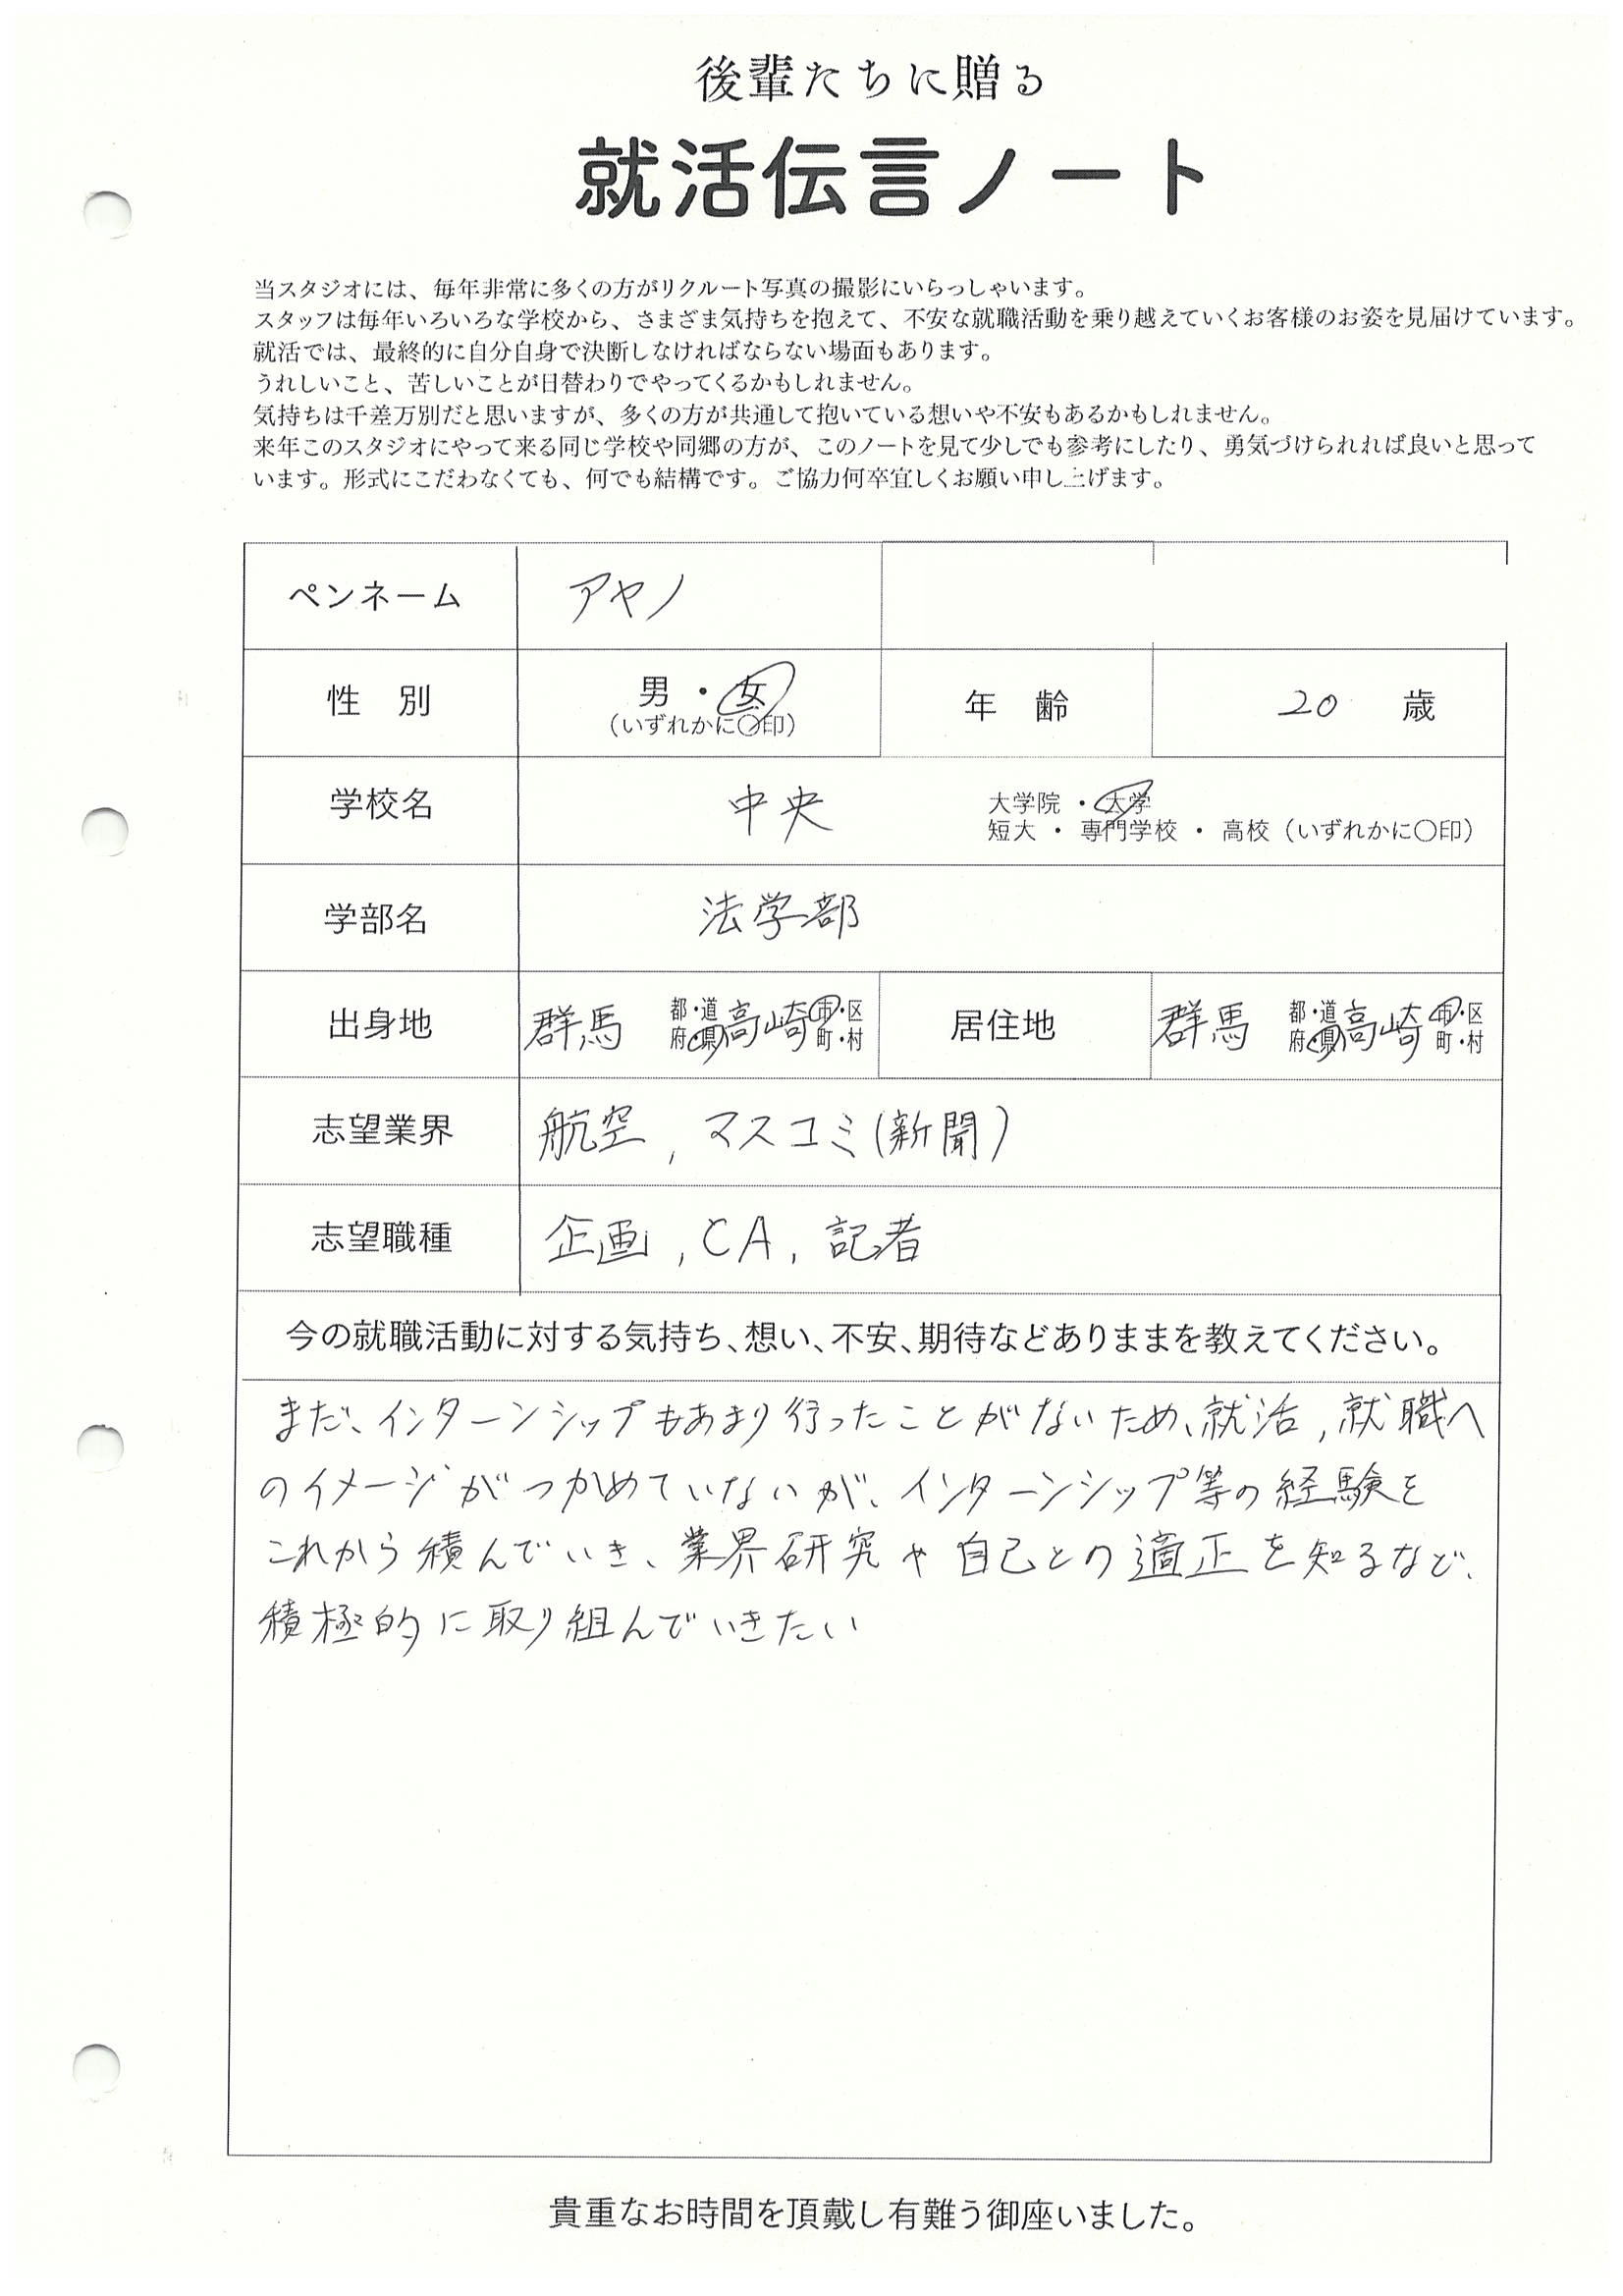 後輩たちに贈る
就活伝言ノート
当スタジオには、毎年非常に多くの方がリクルート写真の撮影にいらっしゃいます。
スタッフは毎年いろいろな学校から、さまざま気持ちを抱えて、不安な就職活動を乗り越えていくお客様のお姿を見届けています。
就活では、最終的に自分自身で決断しなければならない場面もあります。
うれしいこと、苦しいことが日替わりでやってくるかもしれません。
気持ちは千差万別だと思いますが、多くの方が共通して抱いている想いや不安もあるかもしれません。
来年このスタジオにやって来る同じ学校や同郷の方が、このノートを見て少しでも参考にしたり、勇気づけられれば良いと思って
います。形式にこだわなくても、何でも結構です。ご協力何卒宜しくお願い申し上げます。
ペンネーム アヤノ
性 別 男 ・ 女 (いずれかに〇印) 年 齢 20 歳
学校名 中央 大学院 ・ 大学
短大 ・ 専門学校 ・ 高校 (いずれかに〇印)
学部名 法学部
出身地 群馬 都・道府・県 高崎 市・区町・村 居住地 群馬 都・道府・県 高崎 市・区町・村
志望業界 航空, マスコミ(新聞)
志望職種 企画, CA, 記者
今の就職活動に対する気持ち、想い、不安、期待などありままを教えてください。
まだ、インターンシップもあまり行ったことがないため、就活, 就職へ
のイメージがつかめていないが、インターンシップ等の経験を
これから積んでいき、業界研究や自己との適正を知るなど、
積極的に取り組んでいきたい
貴重なお時間を頂戴し有難う御座いました。